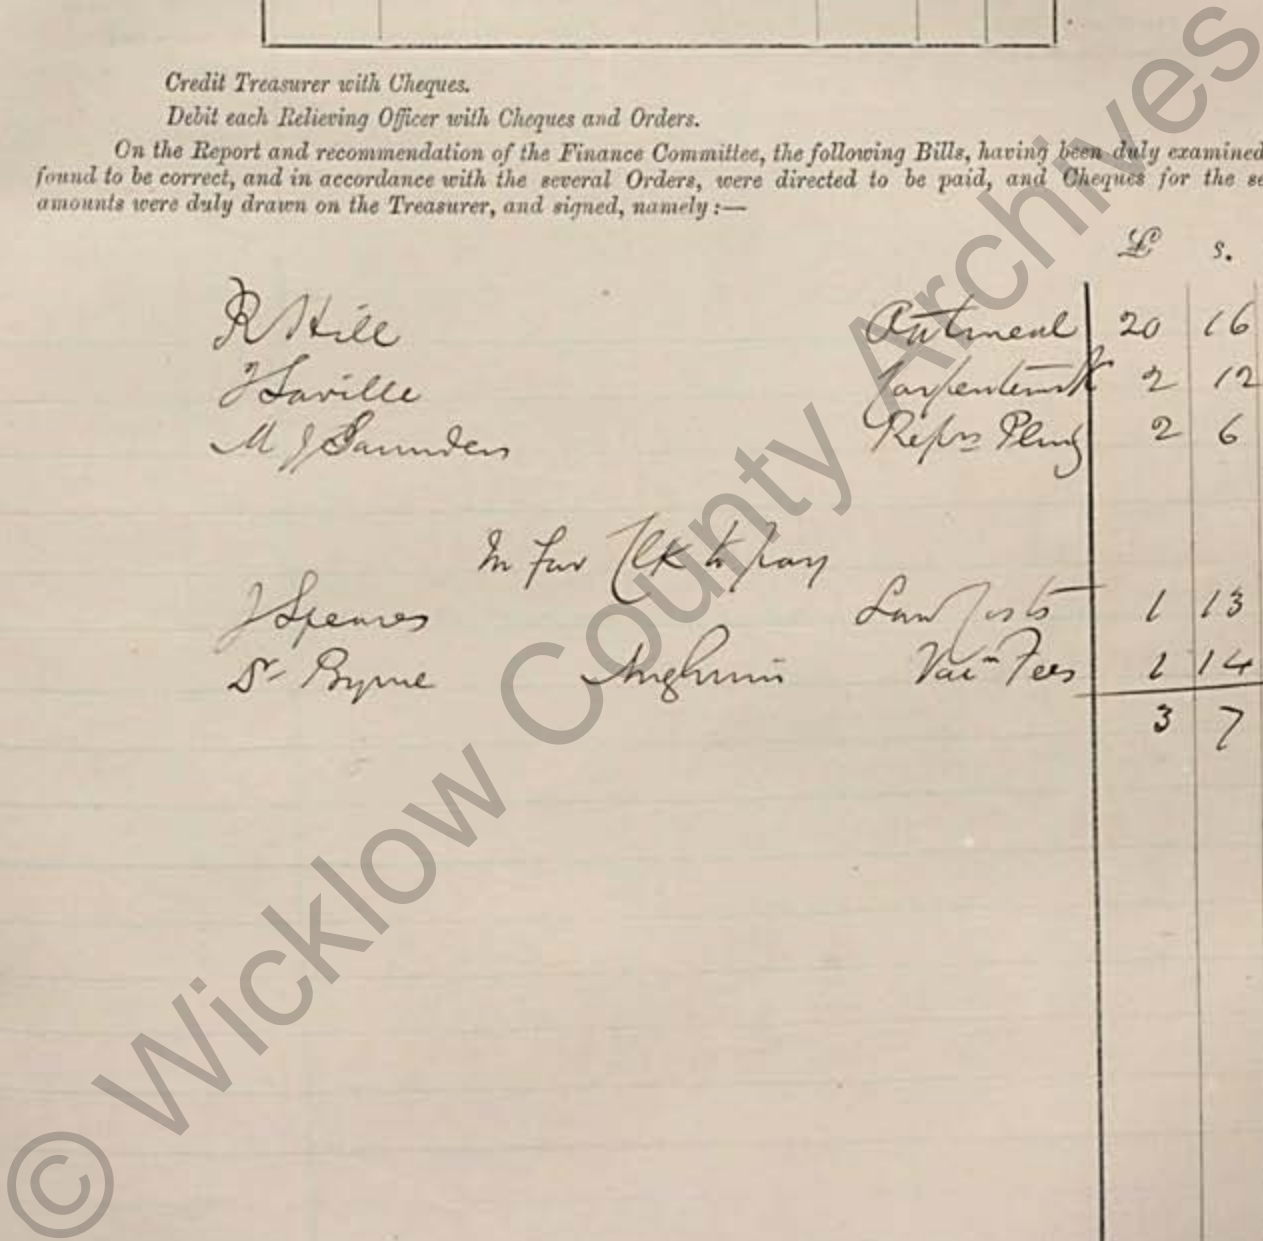 Credit Treasurer with Cheques.
Debit each Relieving Officer with Cheques and Orders.
On the Report and recommendation of the Finance Committee, the following Bills, having been duly examined
found to be correct, and in accordance with the several Orders, were directed to be paid, and Cheques for the se
amounts were duly drawn on the Treasurer, and signed, namely :—
£ s.
R Hill Oatmeal 20 16
J Saville 2 12
M J Saunders Reprs 2 6
In fav Clk to pay
J Speares Law Costs 1 13
Dr Byrne Aughrim Vacn Fees 1 14
3 7
© Wicklow County Archives